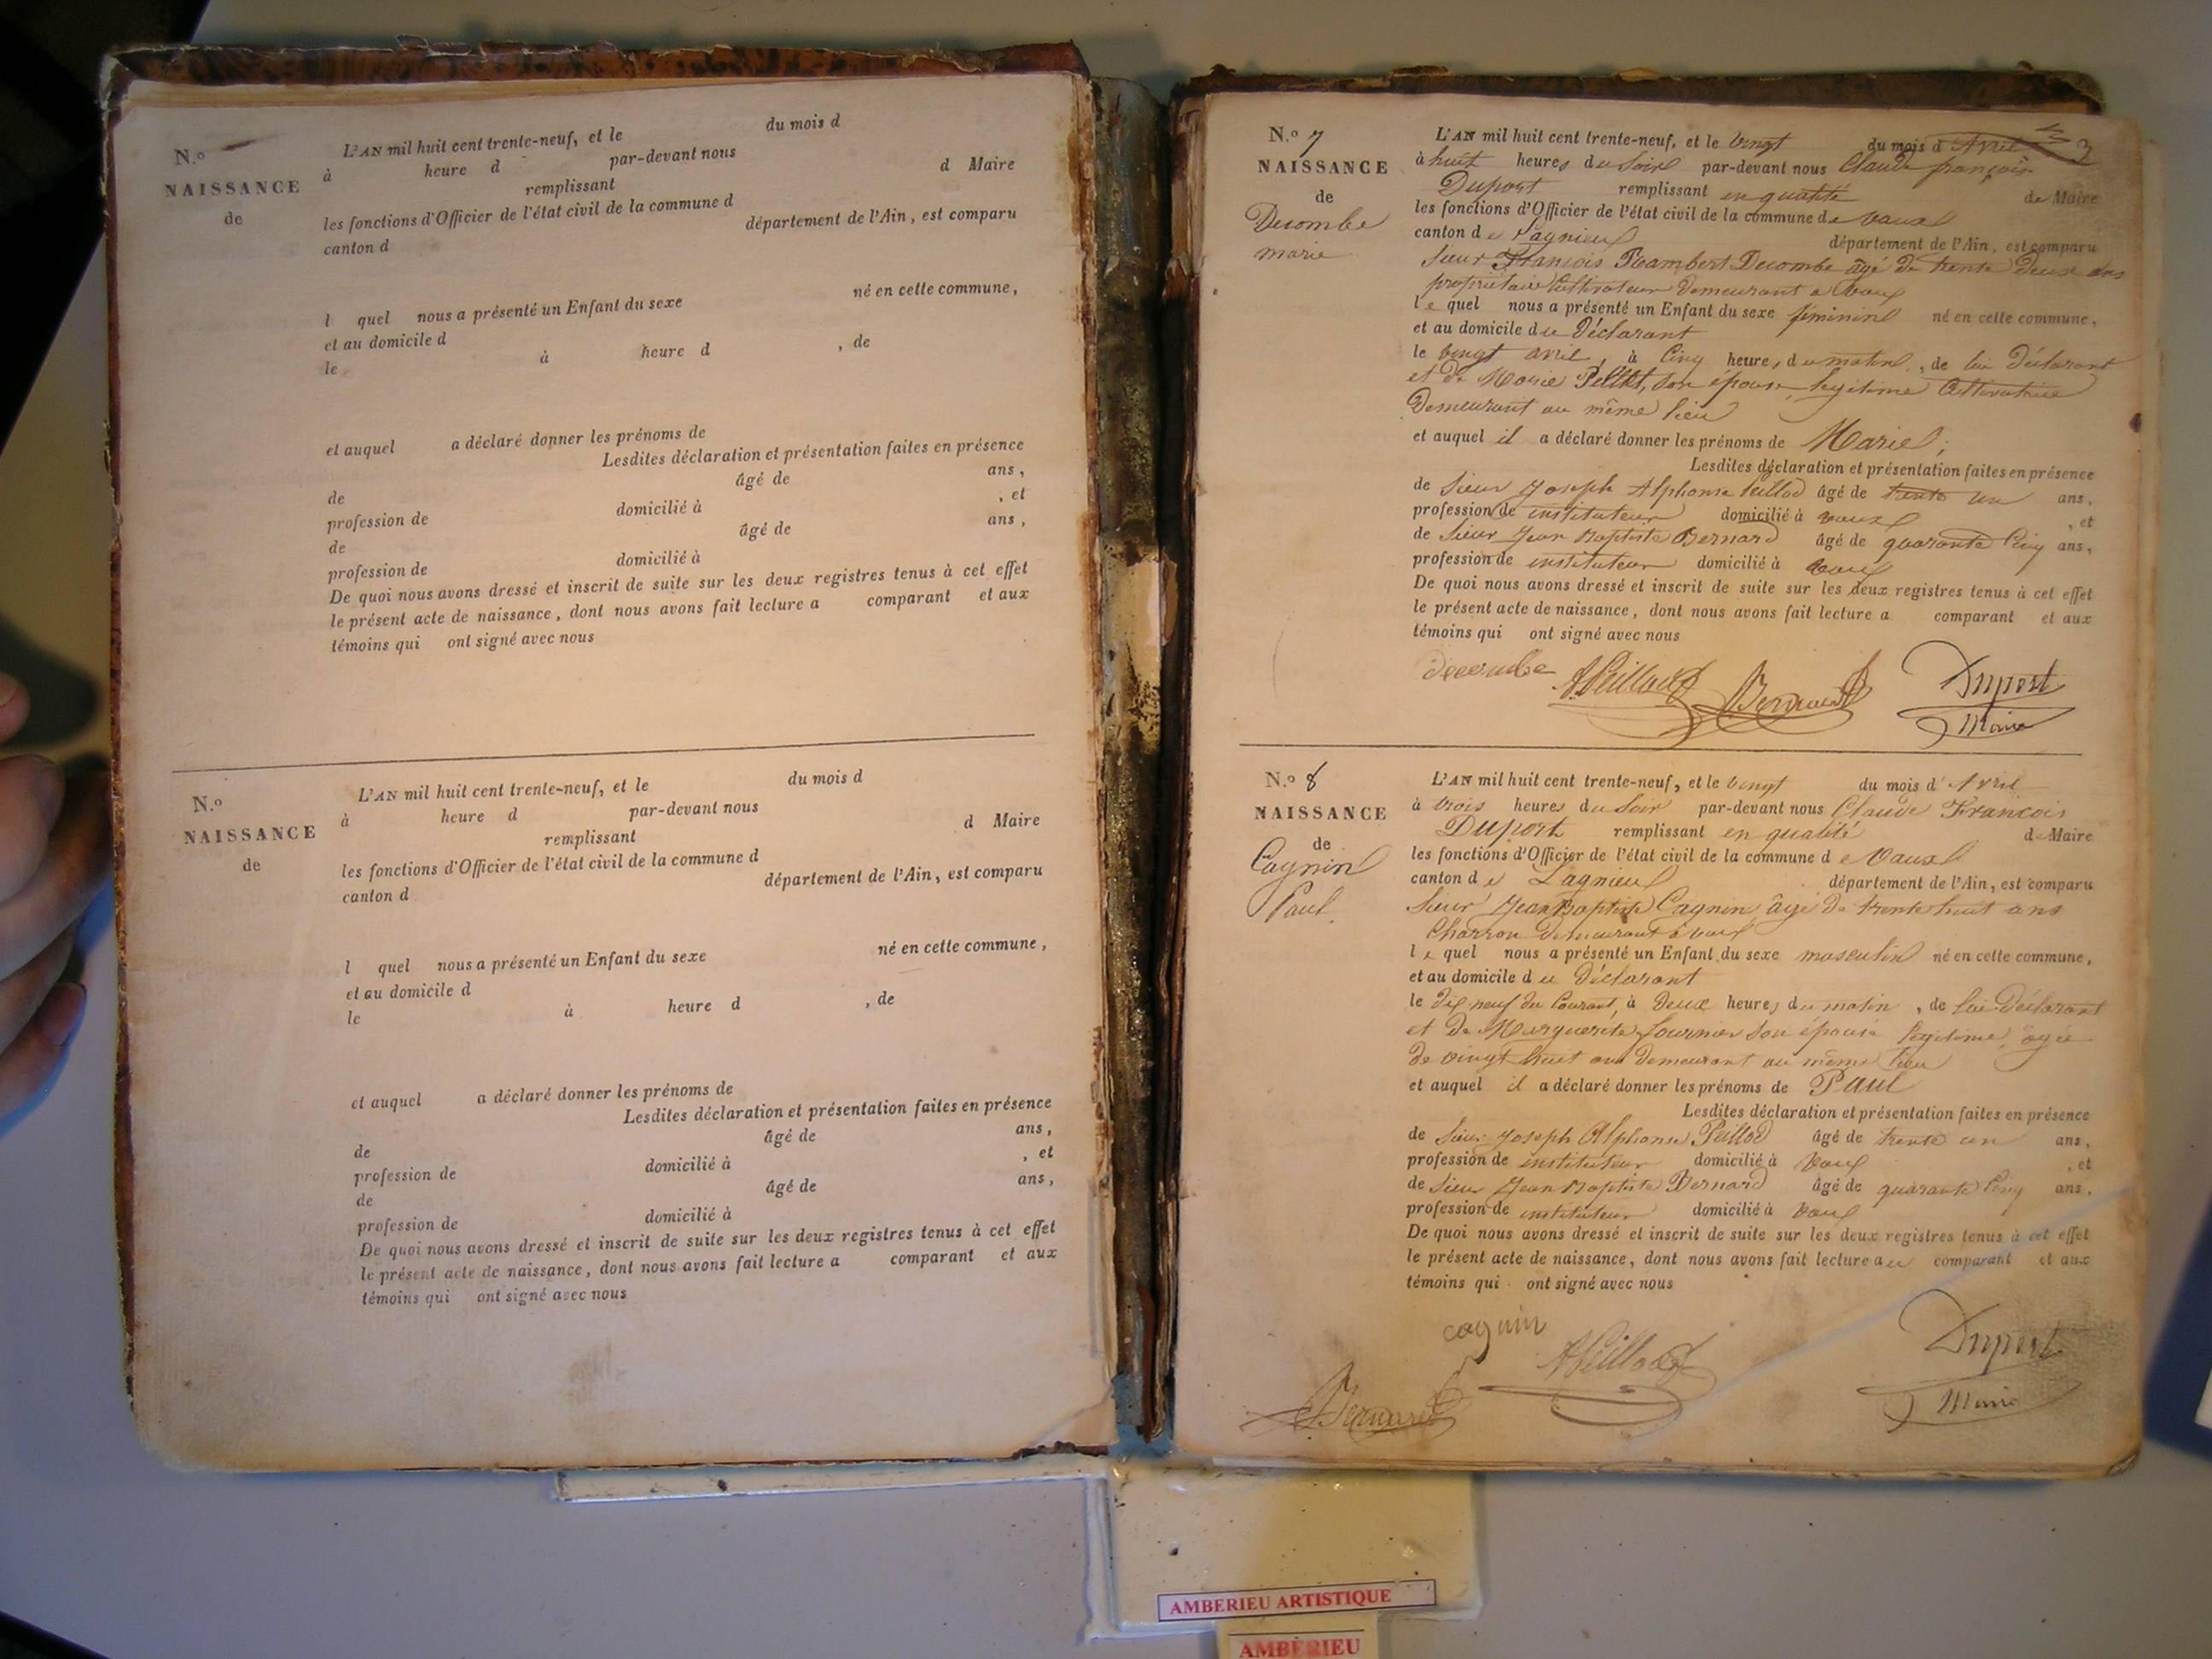 N.º
NAISSANCE
de
L'AN mil huit cent trente-neuf, et le du mois d
à heure d par-devant nous
remplissant d Maire
les fonctions d'Officier de l'état civil de la commune d
canton d département de l'Ain, est comparu
l quel nous a présenté un Enfant du sexe né en cette commune,
et au domicile d
le à heure d , de
et auquel a déclaré donner les prénoms de
Lesdites déclaration et présentation faites en présence
de âgé de ans,
profession de domicilié à , et
de âgé de ans,
profession de domicilié à
De quoi nous avons dressé et inscrit de suite sur les deux registres tenus à cet effet
le présent acte de naissance, dont nous avons fait lecture a comparant et aux
témoins qui ont signé avec nous
N.º
NAISSANCE
de
L'AN mil huit cent trente-neuf, et le du mois d
à heure d par-devant nous
remplissant d Maire
les fonctions d'Officier de l'état civil de la commune d
canton d département de l'Ain, est comparu
l quel nous a présenté un Enfant du sexe né en cette commune,
et au domicile d
le à heure d , de
et auquel a déclaré donner les prénoms de
Lesdites déclaration et présentation faites en présence
de âgé de ans,
profession de domicilié à , et
de âgé de ans,
profession de domicilié à
De quoi nous avons dressé et inscrit de suite sur les deux registres tenus à cet effet
le présent acte de naissance, dont nous avons fait lecture a comparant et aux
témoins qui ont signé avec nous
N.º 7
NAISSANCE
de
Decombe
marie
L'AN mil huit cent trente-neuf, et le vingt du mois d'Avril
à huit heures du soir par-devant nous Claude françois
Duport remplissant en qualité de Maire
les fonctions d'Officier de l'état civil de la commune de vaux
canton de Lagnieux département de l'Ain, est comparu
sieur François Rambert Decombe âgé de trente deux ans
propriétaire Cultivateur demeurant a vaux
le quel nous a présenté un Enfant du sexe féminin né en cette commune,
et au domicile du Déclarant
le vingt avril, à Cinq heures du matin, de lui Déclarant
et de Marie son épouse legitime Cultivatrice
Demeurant au même lieu
et auquel il a déclaré donner les prénoms de Marie;
Lesdites déclaration et présentation faites en présence
de sieur Joseph Alphonse Peillod âgé de trente un ans,
profession de instituteur domicilié à vaux , et
de sieur Jean Baptiste Bernard âgé de quarante Cinq ans,
profession de instituteur domicilié à vaux
De quoi nous avons dressé et inscrit de suite sur les deux registres tenus à cet effet
le présent acte de naissance, dont nous avons fait lecture a comparant et aux
témoins qui ont signé avec nous
decombe APeillod Bernard Duport
Maire
N.º 8
NAISSANCE
de
Cagnin
Paul
L'AN mil huit cent trente-neuf, et le vingt du mois d'Avril
à trois heures du soir par-devant nous Claude François
Duport remplissant en qualité de Maire
les fonctions d'Officier de l'état civil de la commune de Vaux
canton de Lagnieux département de l'Ain, est comparu
sieur Jean Baptiste Cagnin âgé de trente huit ans
Charron demeurant a vaux
le quel nous a présenté un Enfant du sexe masculin né en cette commune,
et au domicile du Déclarant
le dix neuf du Courant, à Deux heures du matin, de lui Déclarant
et de Marguerite fournier son épouse legitime, agée
de vingt huit ans demeurant au même lieu
et auquel il a déclaré donner les prénoms de Paul
Lesdites déclaration et présentation faites en présence
de sieur Joseph Alphonse Peillod âgé de trente un ans,
profession de instituteur domicilié à vaux , et
de sieur Jean Baptiste Bernard âgé de quarante Cinq ans,
profession de instituteur domicilié à vaux
De quoi nous avons dressé et inscrit de suite sur les deux registres tenus à cet effet
le présent acte de naissance, dont nous avons fait lecture au comparant et aux
témoins qui ont signé avec nous
cagnin APeillod Duport
Bernard Maire
AMBERIEU ARTISTIQUE
AMBÉRIEU